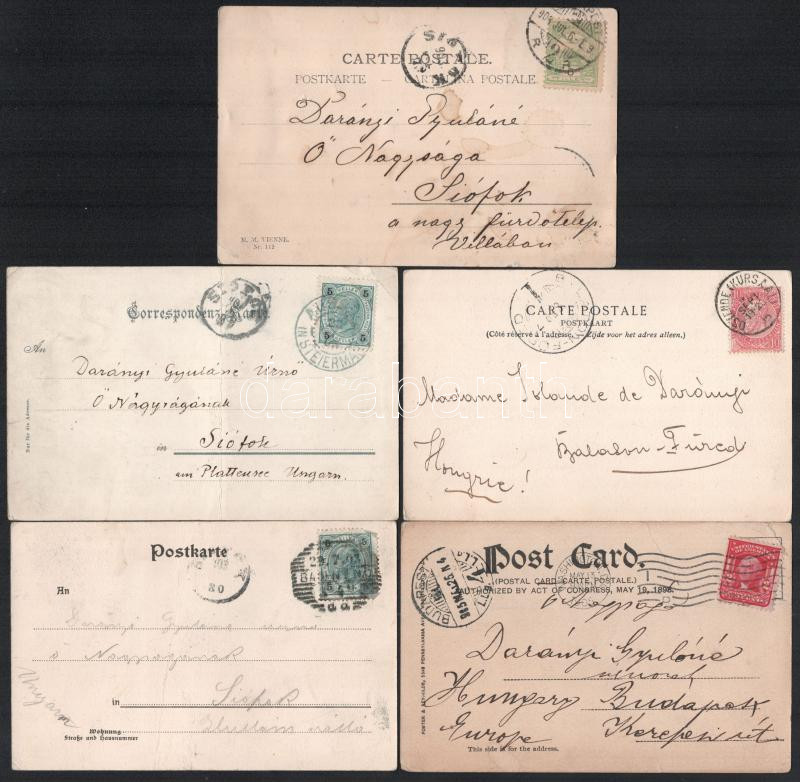 CARTE POSTALE.
POSTKARTE — CARTOLINA POSTALE.
Darányi Gyuláné
Ő Nagysága
Siófok
a nagy fürdőtelep.
Villában
M. M. VIENNE.
Nr. 112
Correspondenz-Karte.
5 5
STEIERMARK
An
Darányi Gyuláné Úrnő
Ő Nagyságának
in Siófok
am Plattensee Ungarn.
Nur für die Adresse.
OSTENDE (KURSAAL)
CARTE POSTALE
POSTKAART
(Côté réservé à l'adresse. — Zijde voor het adres alleen.)
Madame de Darányi
Balaton-Füred
Hongrie!
darabanth
Postkarte
An
Darányi Gyuláné
ő Nagyságának
in Siófok
Ungarn
Wohnung
Straße und Hausnummer
Post Card.
(POSTAL CARD-CARTE POSTALE.)
AUTHORIZED BY ACT OF CONGRESS, MAY 19, 1898.
BUDAPEST
Darányi Gyuláné
Hungary Budapest
Europe Kerepesi út
This side is for the address.